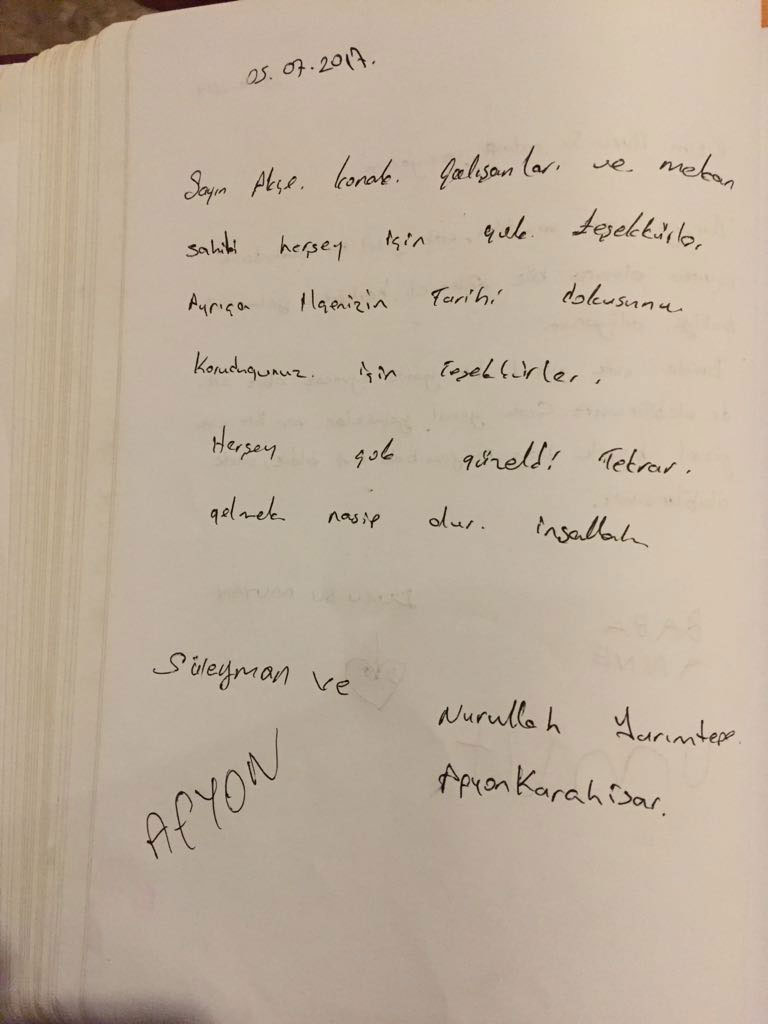 05.07.2017.
Sayın Akçe. konak. Çalışanları ve mekan
sahibi herşey için çok teşekkürler
Ayrıca İlçenizin Tarihi dokusunu
Koruduğunuz. için Teşekkürler.
Herşey çok güzeldi Tekrar.
gelmek nasip olur. inşallah
Süleyman ve
Nurullah Yarımtepe.
AFYON
AfyonKarahisar.